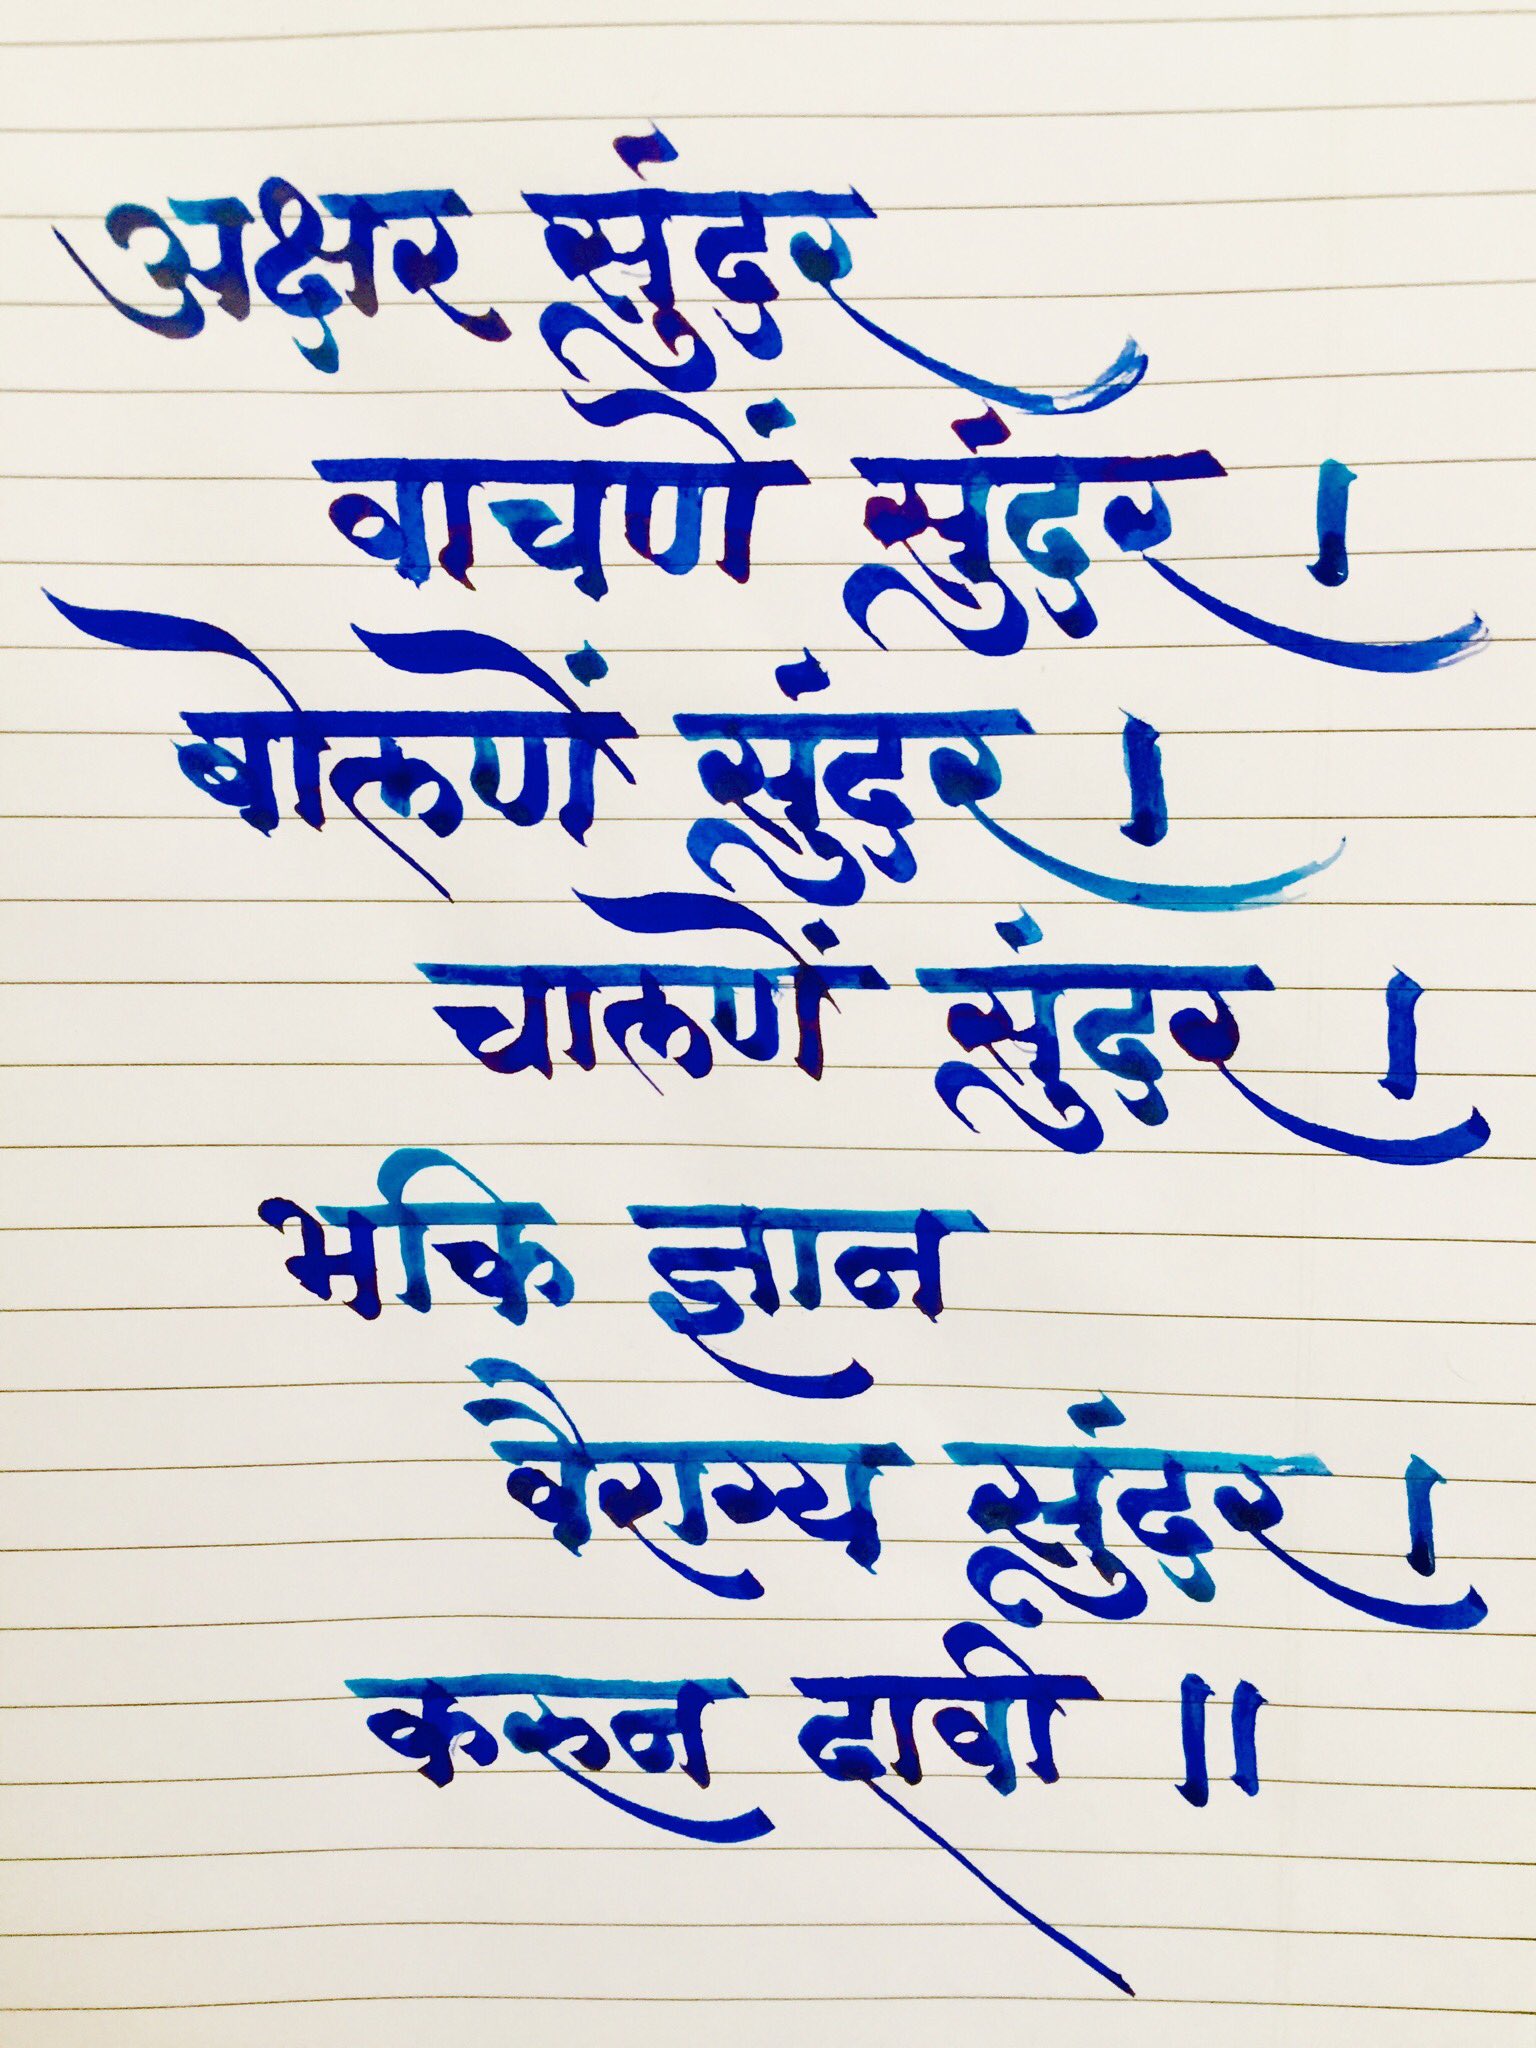 अक्षर सुंदर
वाचणें सुंदर ।
बोलणें सुंदर ।
चालणें सुंदर ।
भक्ति ज्ञान
वैराग्य सुंदर ।
करून दावी ॥